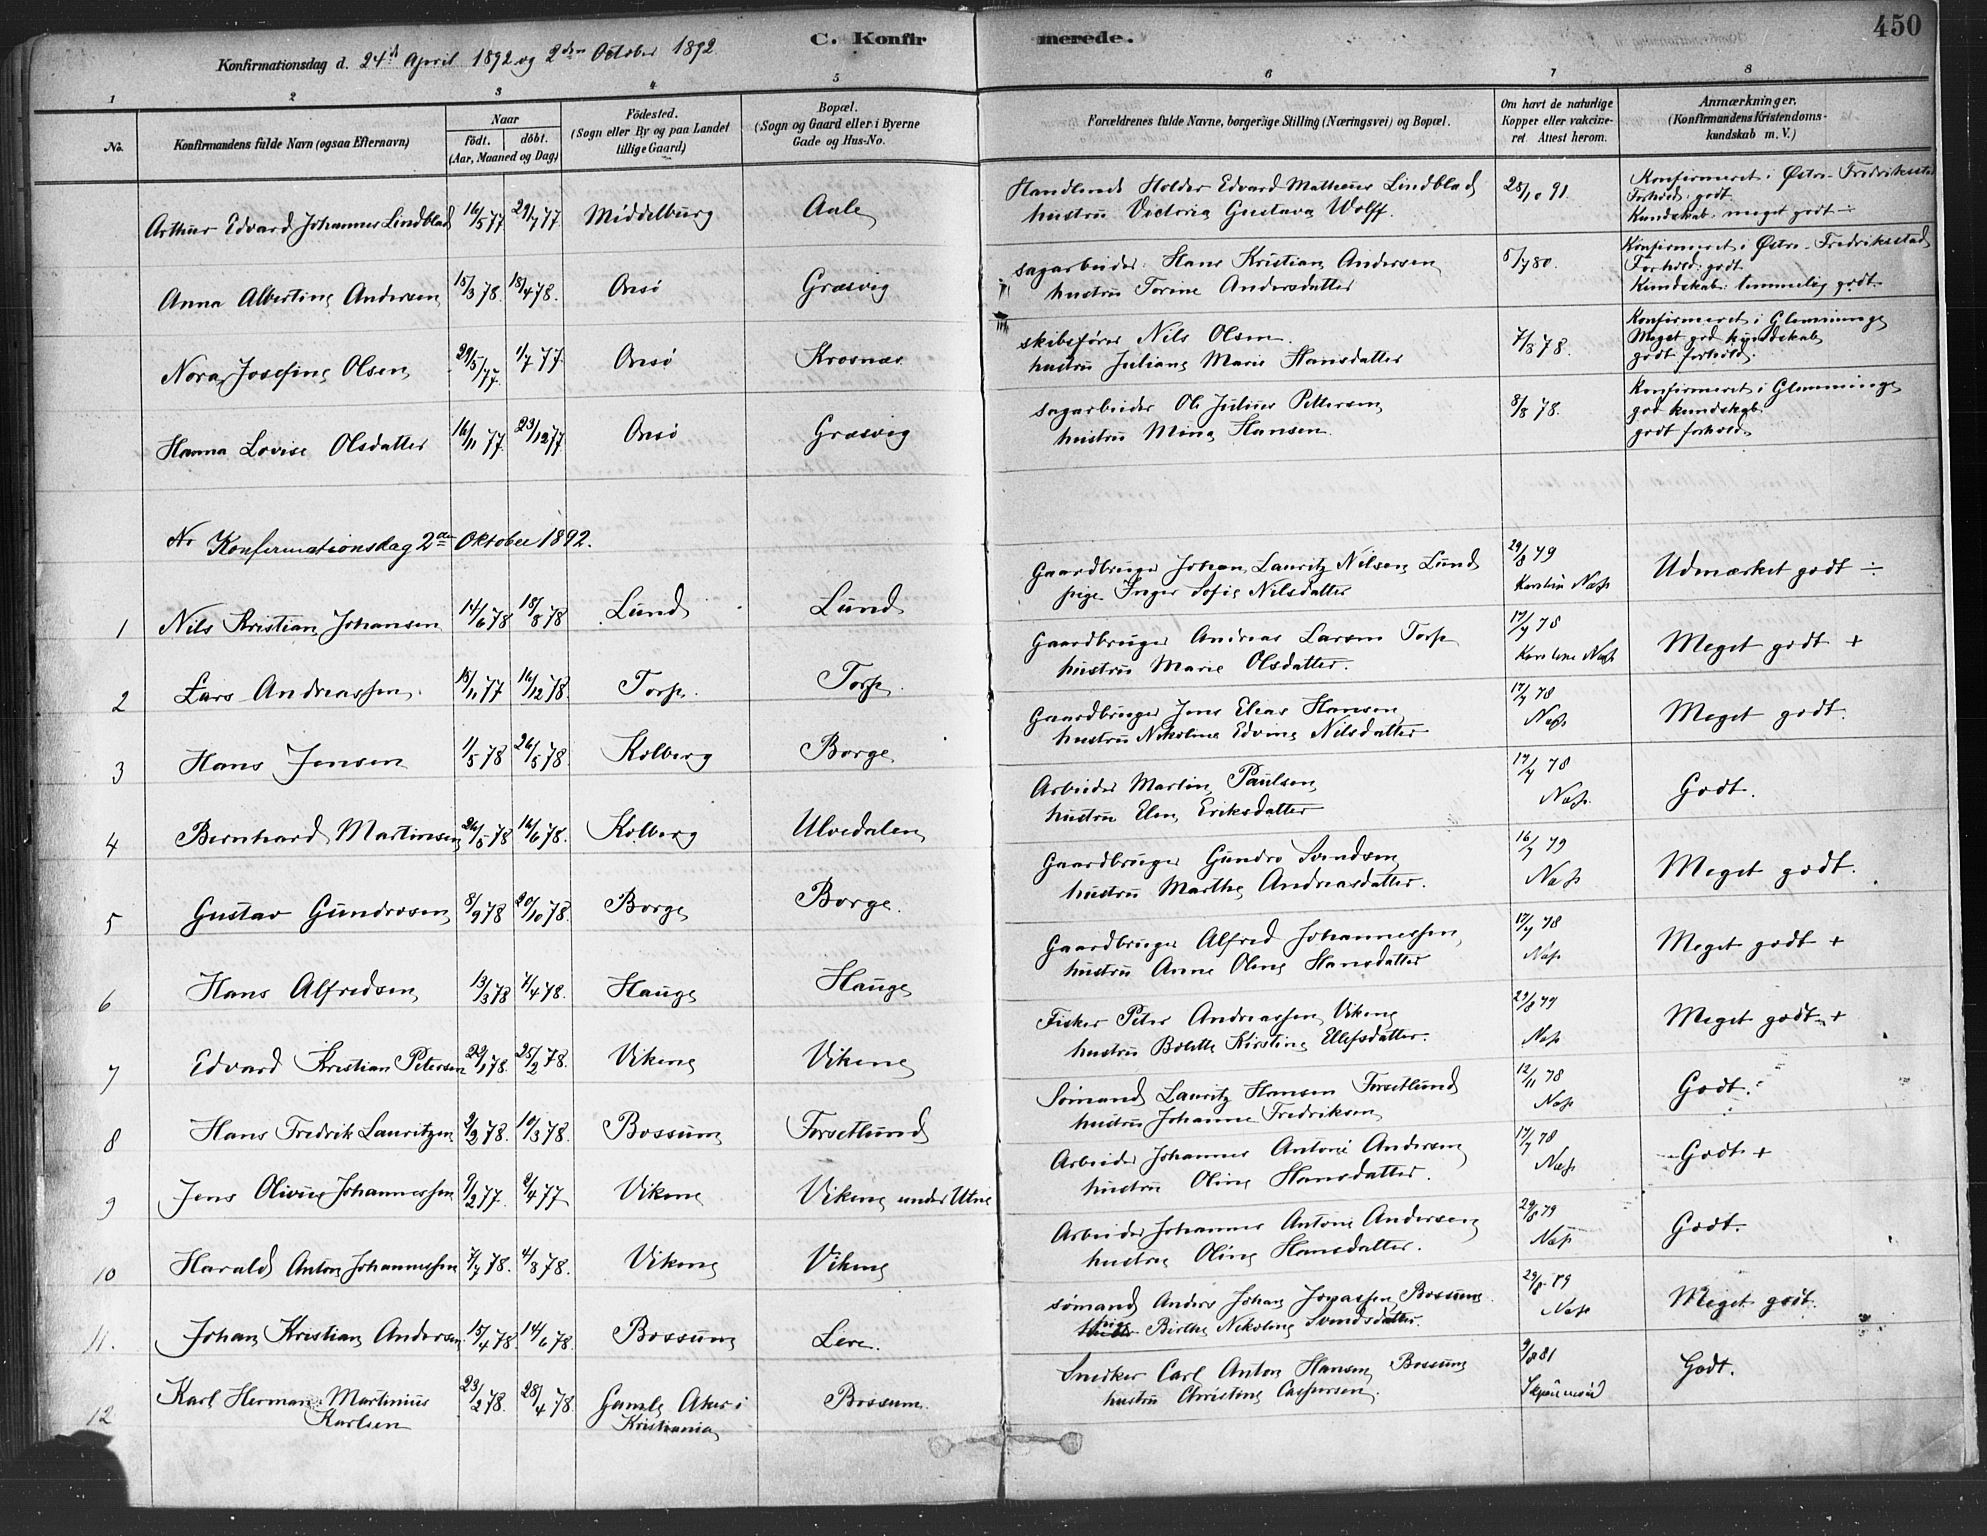 450
C. Konfirmerede.
Konfirmationsdag d. 24d April 1892 og 2den October 1892
1 2 3 4 5 6 7 8
No.
Konfirmandens fulde Navn (ogsaa Efternavn)
Naar
födt. döbt.
(Aar, Maaned og Dag)
Födested.
(Sogn eller By og paa Landet
tillige Gaard)
Bopæl.
(Sogn og Gaard eller i Byerne
Gade og Hus-No.
Forældrenes fulde Navne, borgerlige Stilling (Næringsvei) og Bopæl.
Om havt de naturlige
Kopper eller vakcine-
ret Attest herom.
Anmærkninger.
(Konfirmandens Kristendoms-
kundskab m. V.)
Arthur Edvard Johannes Lindblad 16/5 77 29/7 77 Middelburg Aale
Handlende Holder Edvard Mathæus Lindblad
hustru Victoria Gustava Wolff. 28/10 91.
Konfirmeret i Østre Fredriksstad
Forhold: godt
Kundskab: meget godt ÷
Anna Albertine Andersen 15/3 78. 18/4 78. Onsö Græsvig
sagarbeider Hans Kristian Andersen
hustru Torine Andersdatter 5/7 80.
Konfirmeret i Østre Fredriksstad
Forhold: godt
Kundskab: temmelig godt
Nora Josefine Olsen 29/5 77. 1/7 77. Onsö Krosnæs
skibsförer Nils Olsen.
hustru Juliane Marie Hansdatter 7/3 78.
Konfirmeret i Glemminge
Meget god kundskab
godt forhold.
Hanna Lovise Olsdatter 16/11 77. 23/12 77 Onsö Græsvig
sagarbeider Ole Julius Pettersen
hustru Mina Hansen. 8/8 78.
Konfirmeret i Glemminge
god kundskab.
godt forhold.
No Konfirmationsdag 2den Oktober 1892.
1 Nils Kristian Johansen 14/6 78 18/8 78 Lund Lund
Gaardbruger Johan Lauritz Nilsen Lund
pige Inger Sofie Nilsdatter 29/8 79
Karstine Næss Udmærket godt ÷
2 Lars Andreassen. 15/11 77 16/12 78. Torp. Torp.
Gaardbruger Andreas Larsen Torp
hustru Marie Olsdatter. 17/7 78
Karstine Næss Meget godt +
3 Hans Jensen 1/5 78 26/5 78. Kolberg Borge
Gaardbruger Jens Elias Hansen
hustru Nikoline Edvine Nilsdatter 17/7 78
Næss Meget godt.
4 Bernhard Martinsen 26/5 78 16/6 78. Kolberg Ulvedalen
Arbeider Martin Paulsen
hustru Elen Eriksdatter 17/7 78
Næss. Godt.
5 Gustav Gundrosen 8/9 78 20/10 78. Borge Borge.
Gaardbruger Gundro Svendsen
hustru Marthe Andreasdatter. 16/7 79
Næss Meget godt.
6 Hans Alfredsen 13/3 78 7/4 78. Hauge Hauge
Gaardbruger Alfred Johannessen
hustru Anne Oline Hansdatter 17/7 78
Næss Meget godt +
7 Edvard Kristian Petersen 22/1 78. 25/2 78. Vikene Vikene
Fisker Peter Andreassen Vikene
hustru Bolette Kirstine Ellefsdatter. 29/8 79
Næss Meget godt +
8 Hans Fredrik Lauritzen 2/2 78. 10/3 78. Bossum Torsetlund
Sømand Lauritz Hansen Torsetlund
hustru Johanne Fredriksen 12/11 78
Næss Godt.
9 Jens Olivius Johannessen 9/2 77. 2/4 77 Vikene Vikene under Utne
Arbeider Johannes Antoni Andersen
hustru Oline Hansdatter. 17/7 78
Næss Godt +
10 Harald Anton Johannessen 7/7 78. 4/8 78. Vikene Vikene
Arbeider Johannes Antoni Andersen
hustru Oline Hansdatter. 29/8 79
Næss Godt.
11. Johan Kristian Andersen 15/4 78. 14/6 78. Bossum Lere.
sømand Anders Johan Jonassen Bossum
pige Birthe Nikoline Svendsdatter. 29/8 79
Næss Meget godt.
12 Karl Herman Martinius
Karlsen 23/2 78. 28/4 78. Gamle Aker i
Kristiania Bossum.
Snedker Carl Anton Hansen Bossum
hustru Christine Caspersen. 9/8 81
Godt.